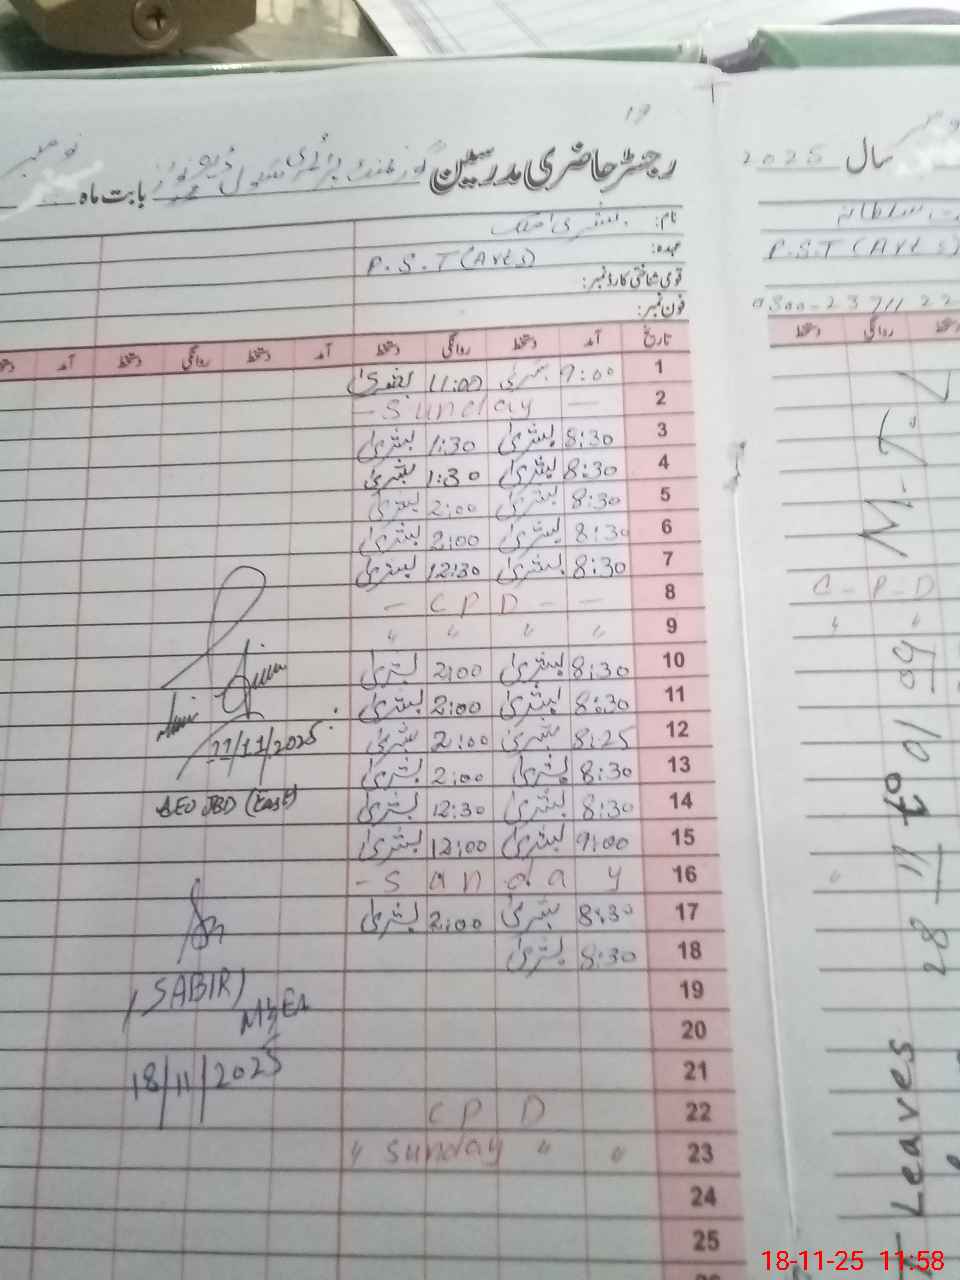 17
رجسٹر حاضری مدرسین گورنمنٹ پرائمری سکول بابت ماہ نومبر
سال 2025
نام: بشریٰ
عہدہ: P.S.T (AVES)
قومی شناختی کارڈ نمبر:
فون نمبر:
تاریخ آمد دستخط روانگی دستخط آمد دستخط روانگی دستخط آمد
1 9:00 بشریٰ 11:00 بشریٰ
2 - Sunday -
3 8:30 بشریٰ 1:30 بشریٰ
4 8:30 بشریٰ 1:30 بشریٰ
5 8:30 بشریٰ 2:00 بشریٰ
6 8:30 بشریٰ 2:00 بشریٰ
7 8:30 بشریٰ 12:30 بشریٰ
8 - C P D - -
9 " " " "
10 8:30 بشریٰ 2:00 بشریٰ
11 8:30 بشریٰ 2:00 بشریٰ
12 8:25 بشریٰ 2:00 بشریٰ
13 8:30 بشریٰ 2:00 بشریٰ
14 8:30 بشریٰ 12:30 بشریٰ
15 9:00 بشریٰ 12:00 بشریٰ
16 - S a n d a y
17 8:30 بشریٰ 2:00 بشریٰ
18 8:30 بشریٰ
19
20
21
22 C P D
23 " Sunday " "
24
25
11/11/2025
AEO JBD (East)
(SABIR)
MEA
18/11/2025
سلطانہ
P.S.T (AVES)
0300-2371122
دستخط روانگی دستخط
C-P-D
" "
M-T-L
Leaves
28 11 to 01 09
18-11-25 11:58